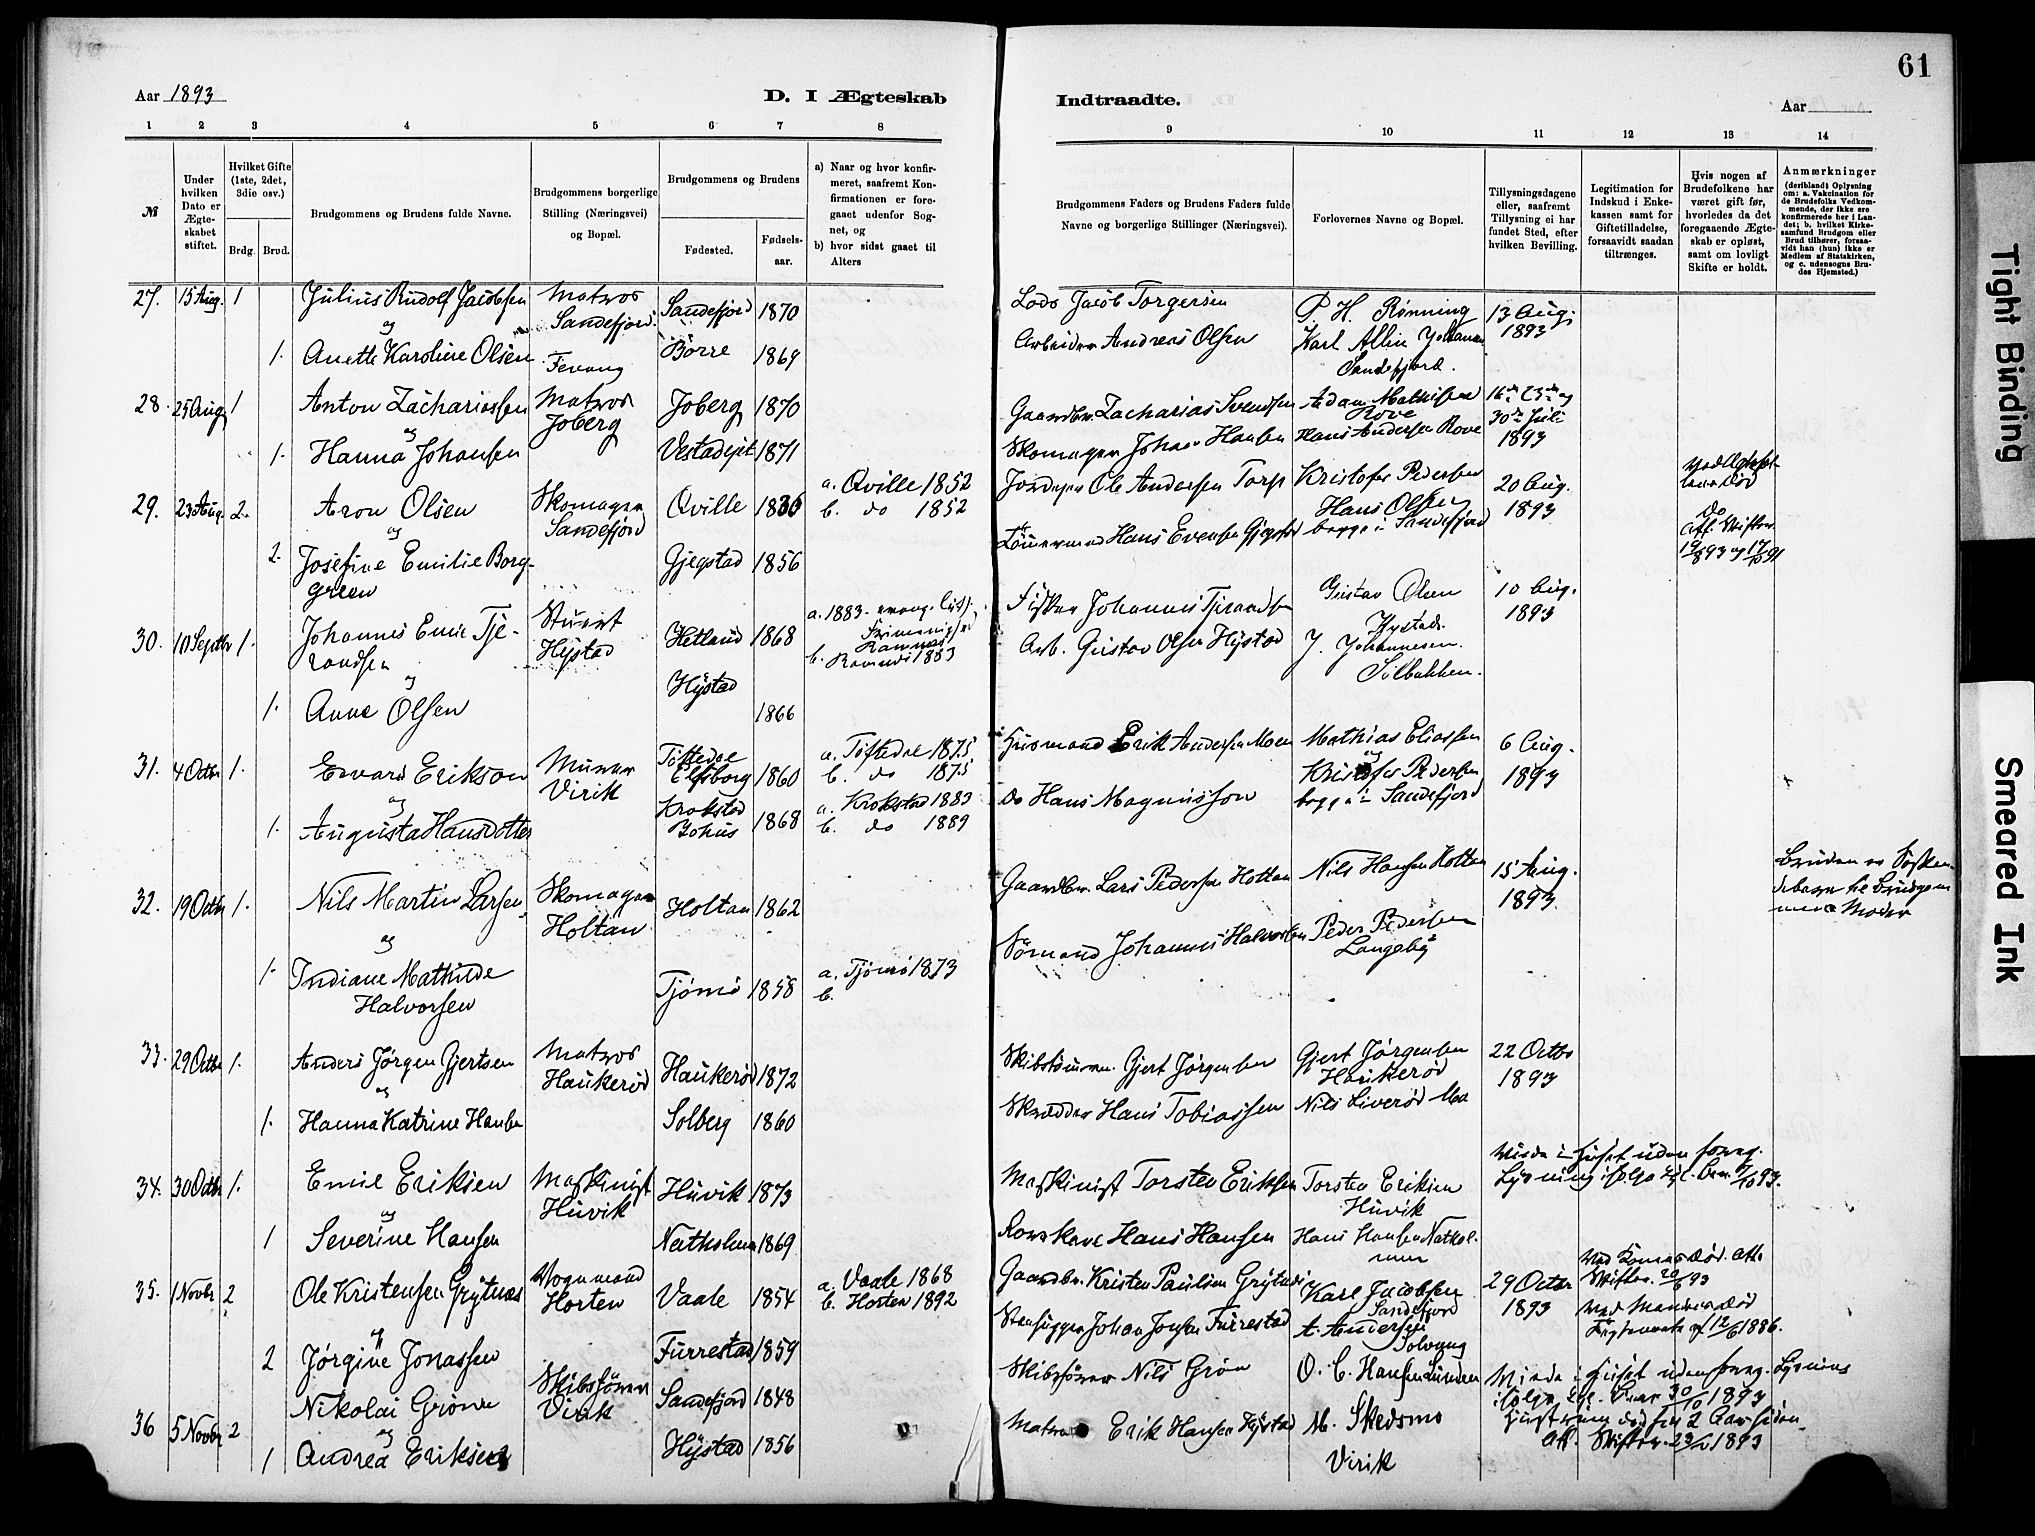 61
Aar 1893
D. I Ægteskab
Indtraadte.
Aar
1 2 3 4 5 6 7 8
9 10 11 12 13 14
№
Under
hvilken
Dato er
Ægte-
skabet
stiftet.
Hvilket Gifte
(1ste, 2det,
3die osv.)
Brdg. Brud.
Brudgommens og Brudens fulde Navne.
Brudgommens borgerlige
Stilling (Næringsvei)
og Bopæl.
Brudgommens og Brudens
Fødested.
Fødsels-
aar.
a) Naar og hvor konfir-
meret, saafremt Kon-
firmationen er fore-
gaaet udenfor Sog-
net, og
b) hvor sidst gaaet til
Alters
Brudgommens Faders og Brudens Faders fulde
Navne og borgerlige Stillinger (Næringsvei).
Forlovernes Navne og Bopæl.
Tillysningsdagene
eller, saafremt
Tillysning ei har
fundet Sted, efter
hvilken Bevilling.
Legitimation for
Indskud i Enke-
kassen samt for
Giftetilladelse,
forsaavidt saadan
tiltrænges.
Hvis nogen af
Brudefolkene har
været gift før,
hvorledes da det
foregaaende Ægte-
skab er opløst,
samt om lovligt
Skifte er holdt.
Anmærkninger
(deriblandt Oplysning
om: a. Vakcination for
de Brudefolks Vedkom-
mende, der ikke ere
konfirmerede her i Lan-
det; b. hvilket Kirke-
samfund Brudgom eller
Brud tilhører, forsaa-
vidt han (hun) ikke er
Medlem af Statskirken,
og c. udensogns Bru-
des Hjemsted.)
27. 15 Aug. 1 Julius Rudolf Jacobsen Matros Sandefjord 1870
og Sandefjord
1. Anette Karoline Olsen Fevang Borre 1869
Lods Jacob Torgersen P. H. Rønning 13 Aug.
Arbeider Andreas Olsen Karl Allin 1893
Sandefjord.
28. 25 Aug. 1 Anton Zachariassen Matros Joberg 1870
og Joberg
1. Hanna Johansen 1871
Gaardbr. Zacharias Svendsen Adam Mathisen
Rove 30te Juli
Skomager Johan Hansen Hans Andersen Rove 1893
29. 23 Aug. 2. Aron Olsen Skomager Qville a. Qville 1852
og Sandefjord b. do 1852
2. Josefine Emilie Borg- Gjegstad 1856
green
Ole Andersen Torp Kristofer Pedersen 20 Aug.
Hans Olsen 1893
Hans Evensen Gjegstad begge i Sandefjord
do
30. 10 Septbr 1. Johannes Emil Tje- Stuert Hetland 1868 a. 1883
randsen Hystad b. 1883
og
1. Anne Olsen Hystad 1866
Fisker Johannes Tjerandsen Gustav Olsen 10 Aug.
Hystad. 1893
Arb. Gustav Olsen Hystad J. Johannesen
31. 4 Octbr 1. Edvard Erikson Murer Tøftedal a. Tøftedal 1875
og Virik Elfsborg 1860 b. do 1875
1. Augusta Hansdotter Krokstad a. Krokstad 1883
Bohus 1868 b. do 1889
Husmand Erik Andersen Moen Mathias Eliassen 6 Aug.
og
do Hans Magnusson Kristofer Pedersen 1893
begge i Sandefjord
32. 19 Octbr 1. Nils Martin Larsen Skomager Holtan 1862
og Holtan
1. Indiane Mathilde Tjømø 1858 a. Tjømø 1873
Halvorsen b.
Gaardbr. Lars Pedersen Holtan Nils Hansen Holtan 15 Aug.
1893
Sømand Johannes Halvorsen Peder Pedersen
Langeby
Bruden er Søsken-
debarn til Brudgom-
mens Moder
33. 29 Octbr 1. Anders Jørgen Gjertsen Matros Haukerød 1872
og Haukerød
1. Hanna Katrine Hansen Solberg 1860
Skibstømrm. Gjert Jørgensen Gjert Jørgensen 22 Octbr
Haukerød 1893
Skrædder Hans Tobiassen Nils Liverød
34. 30 Octbr 1. Emil Eriksen Maskinist Huvik 1873
og Huvik
1 Severine Hansen Natholmen 1869
Maskinist Torsten Eriksen Torsten Eriksen
Huvik
Hans Hansen Hans Hansen Nathol-
men
Viede i Huset uden foreg.
Lysning ifølge
35. 1 Novbr 2 Ole Kristensen Grytnæs Vognmand Vaale 1854 a. Vaale 1868
og Horten b. Horten 1892
2 Jørgine Jonassen Furrestad 1859
Gaardbr. Kristen Paulsen Grytnæs Karl Jacobsen 29 Octbr
Sandefjord 1893
Stenhugger Johan Jonsen Furrestad A. Andersen
Solvang
Ved Konens Død. Att.
Skiftebr. 20/6 93
Ved Mandens Død
12/6 1886.
36 5 Novbr 2 Nikolai Grønn Skibsfører Sandefjord 1848
og Virik
1 Andrea Eriksen Hystad 1856
Skibsfører Nils Grøn O. C. Hansen Lunden
Matros Erik Hansen Hystad M. Skedsmo
Virik
Viede i Huset uden foreg. Lysning
ifølge 30/10 1893
Hustruen død for 2 Aar siden
Att. Skiftebr. 1893
Tight Binding
Smeared Ink